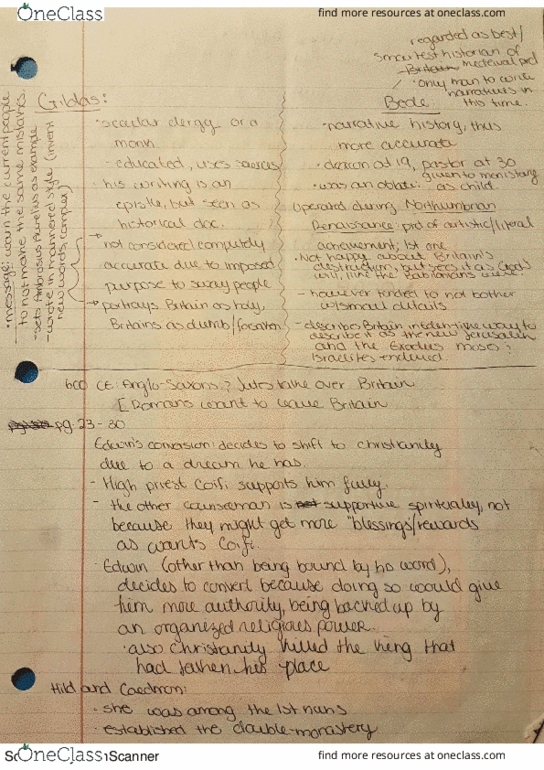 OneClass
find more resources at oneclass.com
regarded as best/
smartest historian of
Britain medeival pd
· only man to write
narratives in
this time.
· message: warn the current people
to not make the same mistakes.
· sets Ambrosius Aurelius as example
- wrote in mannered style (invent
new words, complex)
Gildas:
· secular clergy or a
monk
- educated, uses sources
· his writing is an
epistle, but seen as
historical doc.
not considered completely
accurate due to imposed
purpose to sway people
portrays Britain as holy,
Britains as dumb/forsaken
Bede
· narrative history, thus
more accurate
· deacon at 19, pastor at 30
given to monistary
· was an oblate: as child.
Operated during Northumbrian
Renaissance: pd of artistic/literal
achievement; 1st one
· Not happy about Britain's
destruction, but sees it as God's
will, like the
- however tended to not bother
w/small details
- describes Britain in way to
describe it as the new Jerusalem
and the Exodus moses :
Israelites endured.
600 CE: Anglo-Saxons ? Jutes take over Britain
[Romans want to leave Britain
pg. 23 - 30
Edwin's conversion: decides to shift to christianity
due to a dream he has.
- High priest Coifi supports him fully.
- the other counselman is not supportive spiritually, not
because they might get more "blessings/rewards
as wants Coifi.
· Edwin (other than being bound by his word),
decides to convert because doing so would give
him more authority, being backed up by
an organized religious power.
· also christianity killed the king that
had taken his place
Hild and Caedmon:
· she was among the 1st nuns
· established the double-monastery
OneClass
Scanner
find more resources at oneclass.com